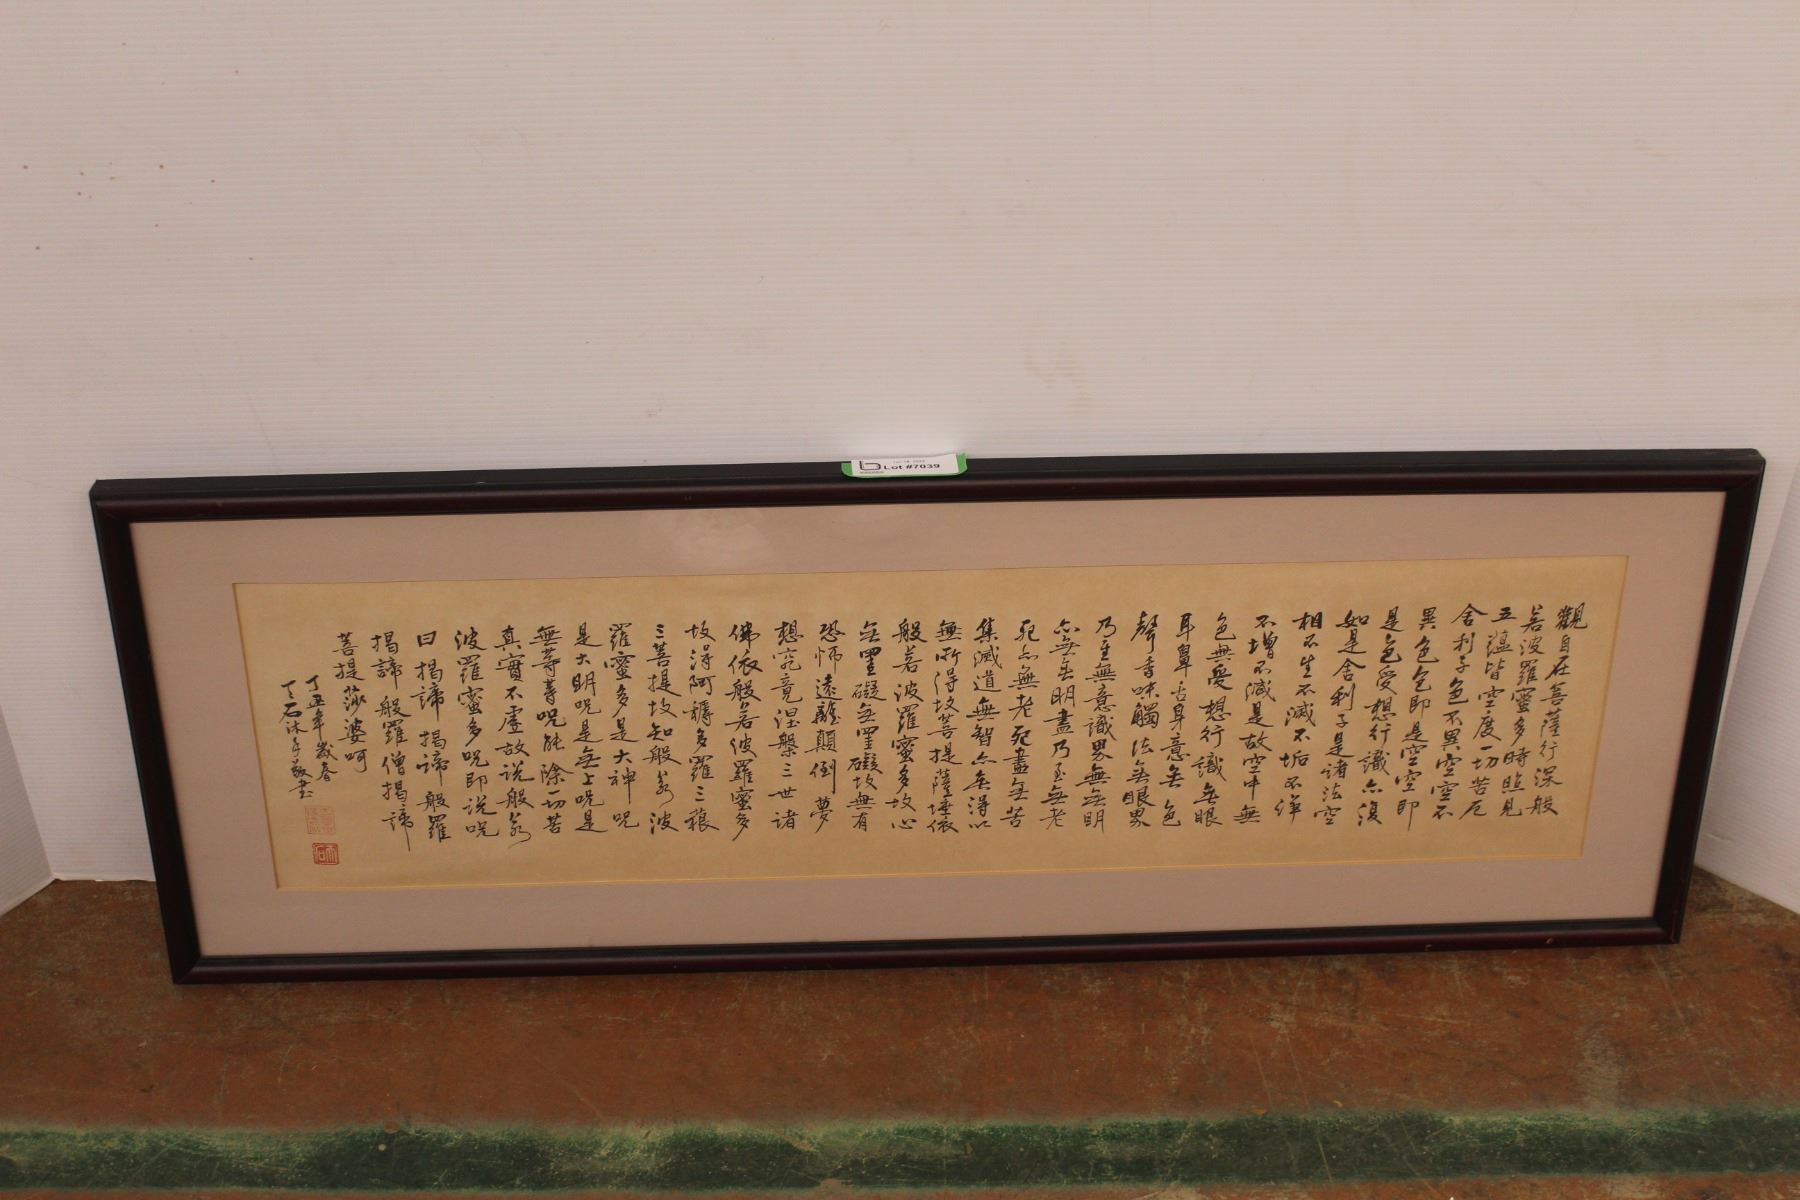 Lot #7039
觀自在菩薩行深般
若波羅蜜多時照見
五蘊皆空度一切苦厄
舍利子色不異空空不
異色色即是空空即
是色受想行識亦復
如是舍利子是諸法空
相不生不滅不垢不淨
不增不減是故空中無
色無受想行識無眼
耳鼻舌身意無色
聲香味觸法無眼界
乃至無意識界無無明
亦無無明盡乃至無老
死亦無老死盡無苦
集滅道無智亦無得以
無所得故菩提薩埵依
般若波羅蜜多故心
無罣礙無罣礙故無有
恐怖遠離顛倒夢
想究竟涅槃三世諸
佛依般若波羅蜜多
故得阿耨多羅三藐
三菩提故知般若波
羅蜜多是大神咒
是大明咒是無上咒是
無等等咒能除一切苦
真實不虛故說般若
波羅蜜多咒即說咒
曰揭諦揭諦般羅
揭諦般羅僧揭諦
菩提莎婆呵
丁丑年歲春
石沐手敬書